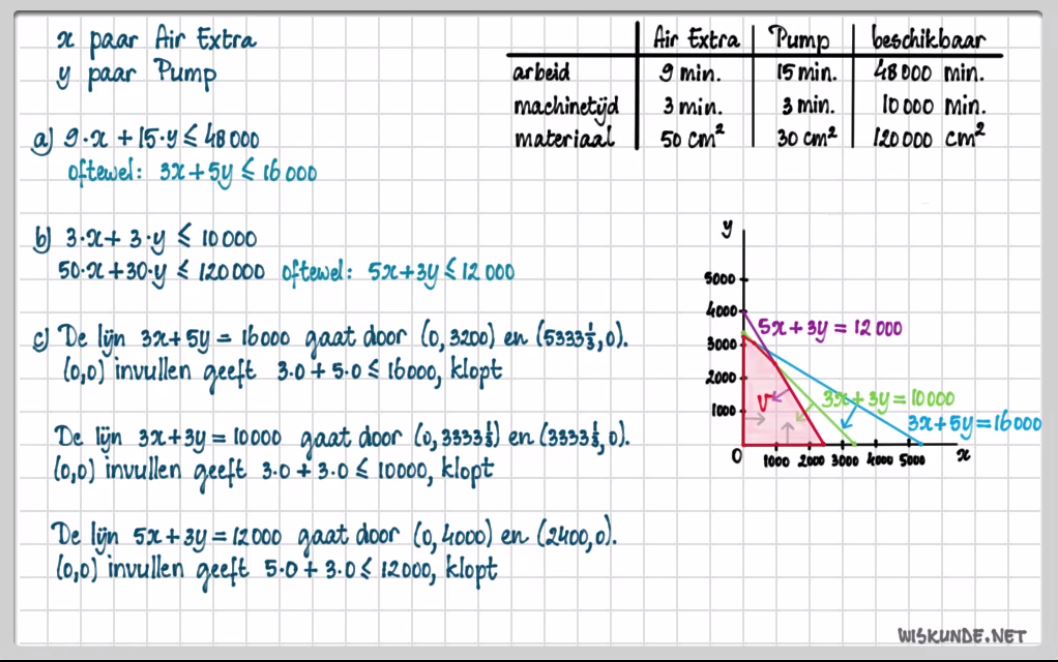 x paar Air Extra
y paar Pump
Air Extra | Pump | beschikbaar
arbeid | 9 min. | 15 min. | 48 000 min.
machinetijd | 3 min. | 3 min. | 10 000 min.
materiaal | 50 cm² | 30 cm² | 120 000 cm²
a) 9·x + 15·y ≤ 48 000
oftewel: 3x + 5y ≤ 16 000
b) 3·x + 3·y ≤ 10 000
50·x + 30·y ≤ 120 000 oftewel: 5x + 3y ≤ 12 000
c) De lijn 3x + 5y = 16000 gaat door (0, 3200) en (5333⅓, 0).
(0,0) invullen geeft 3·0 + 5·0 ≤ 16000, klopt
De lijn 3x + 3y = 10000 gaat door (0, 3333⅓) en (3333⅓, 0).
(0,0) invullen geeft 3·0 + 3·0 ≤ 10000, klopt
De lijn 5x + 3y = 12000 gaat door (0, 4000) en (2400, 0).
(0,0) invullen geeft 5·0 + 3·0 ≤ 12000, klopt
y
5000
4000
3000
2000
1000
5x + 3y = 12 000
3x + 3y = 10 000
3x + 5y = 16 000
V
0 1000 2000 3000 4000 5000 x
WISKUNDE.NET